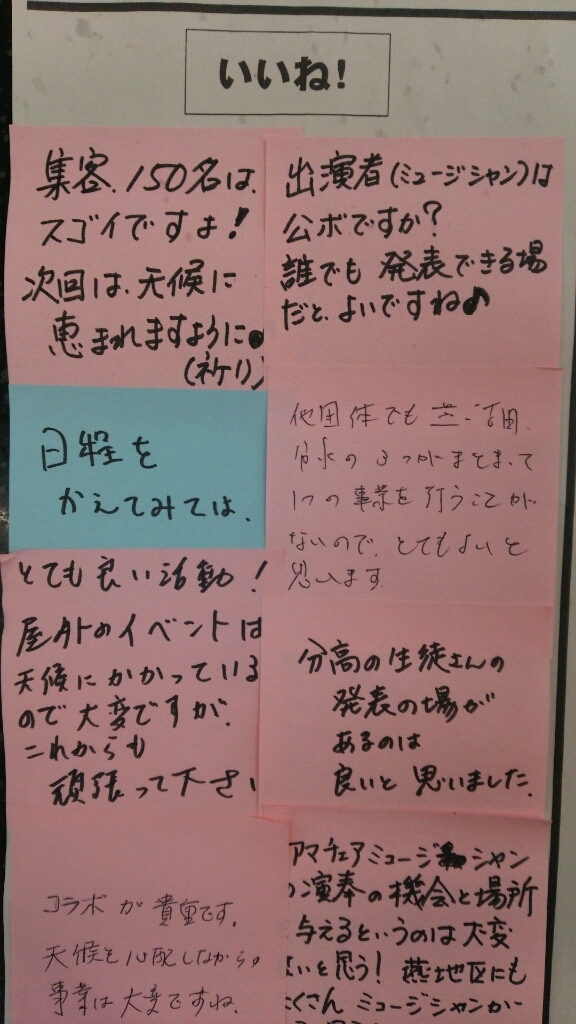 いいね!
集客、150名は、
スゴイですよ!
次回は、天候に
恵まれますように
(祈り)
出演者(ミュージシャン)は
公ボですか?
誰でも 発表できる場
だと、よいですね♪
日程を
かえてみては、
他団体でも
分水の3つがまとまって
1つの事業を行うことが
ないので、とてもよいと
思います
とても良い活動!
屋外のイベントは
天候にかかっている
ので大変ですが、
これからも
頑張って下さい
分高の生徒さんの
発表の場が
あるのは
良いと思いました。
コラボが貴重です。
天候を心配しながら。
事業は大変ですね。
アマチュアミュージシャン
の演奏の機会と場所
与えるというのは大変
いいと思う! 燕地区にも
たくさん ミュージシャンが